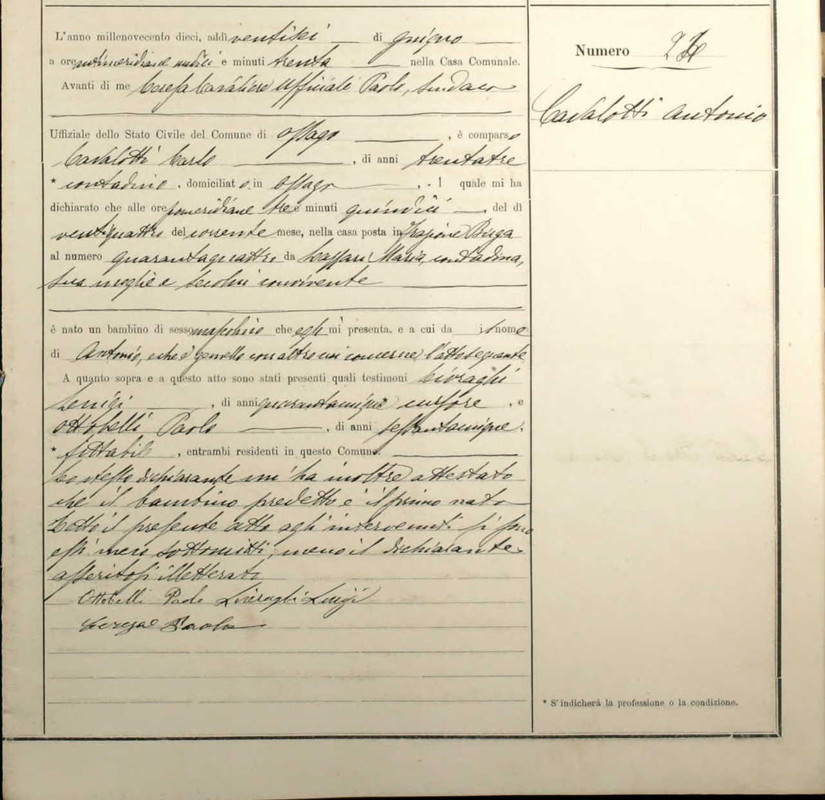 L'anno millenovecento dieci, addì ventisei di giugno
a ore antimeridiane undici e minuti trenta nella Casa Comunale.
Avanti di me Cavaliere Ufficiale Paolo, Sindaco
Uffiziale dello Stato Civile del Comune di Ossago, è comparso
Cavalotti Carlo, di anni trentatre
* contadino, domiciliato in Ossago, il quale mi ha
dichiarato che alle ore pomeridiane tre e minuti quindici, del dì
ventiquattro del corrente mese, nella casa posta in Frazione
al numero quarantaquattro da Maria, contadina,
sua moglie e seco lui convivente
è nato un bambino di sesso mascolino che egli mi presenta, e a cui da il nome
di Antonio, e che è gemello con altro cui concerne l'atto seguente
A quanto sopra e a questo atto sono stati presenti quali testimoni Livraghi
Luigi, di anni quarantacinque cursore, e
Ottobelli Paolo, di anni sessantacinque,
* fittabile, entrambi residenti in questo Comune.
Lo stesso dichiarante mi ha inoltre attestato
che il bambino predetto è il primo nato
Letto il presente atto agli intervenuti si sono
essi meco sottoscritti, meno il dichiarante
asseritosi illetterato
Ottobelli Paolo Livraghi Luigi
Paolo
Numero
Cavalotti Antonio
* S'indicherà la professione o la condizione.